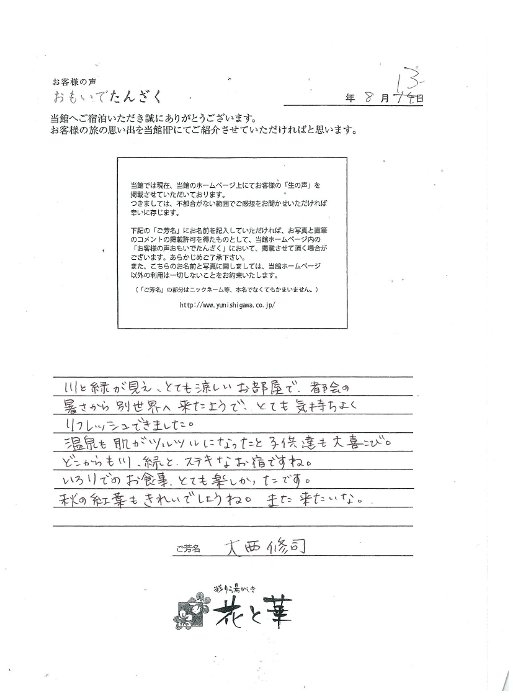 お客様の声
おもいでたんざく
13
年 8月 14日
当館へご宿泊いただき誠にありがとうございます。
お客様の旅の思い出を当館HPにてご紹介させていただければと思います。
当館では現在、当館のホームページ上にてお客様の「生の声」を
掲載させていただいております。
つきましては、不都合がない範囲でご感想をお聞かせいただければ
幸いに存じます。
下記の「ご芳名」にお名前を記入していただければ、お写真と直筆
のコメントの掲載許可を得たものとして、当館ホームページ内の
「お客様の声おもいでたんざく」において、掲載させて頂く場合が
ございます。あらかじめご了承下さい。
また、こちらのお名前と写真に関しましては、当館ホームページ
以外の利用は一切しないことをお約束いたします。
（「ご芳名」の部分はニックネーム等、本名でなくてもかまいません。）
http://www.yunishigawa.co.jp/
川と緑が見え、とても涼しいお部屋で、都会の
暑さから別世界へ来たようで、とても気持ちよく
リフレッシュできました。
温泉も肌がツルツルになったと子供達も大喜び。
どこからも川、緑と、ステキなお宿ですね。
いろりでのお食事、とても楽しかったです。
秋の紅葉もきれいでしょうね。また来たいな。
ご芳名 大西修司
花と華